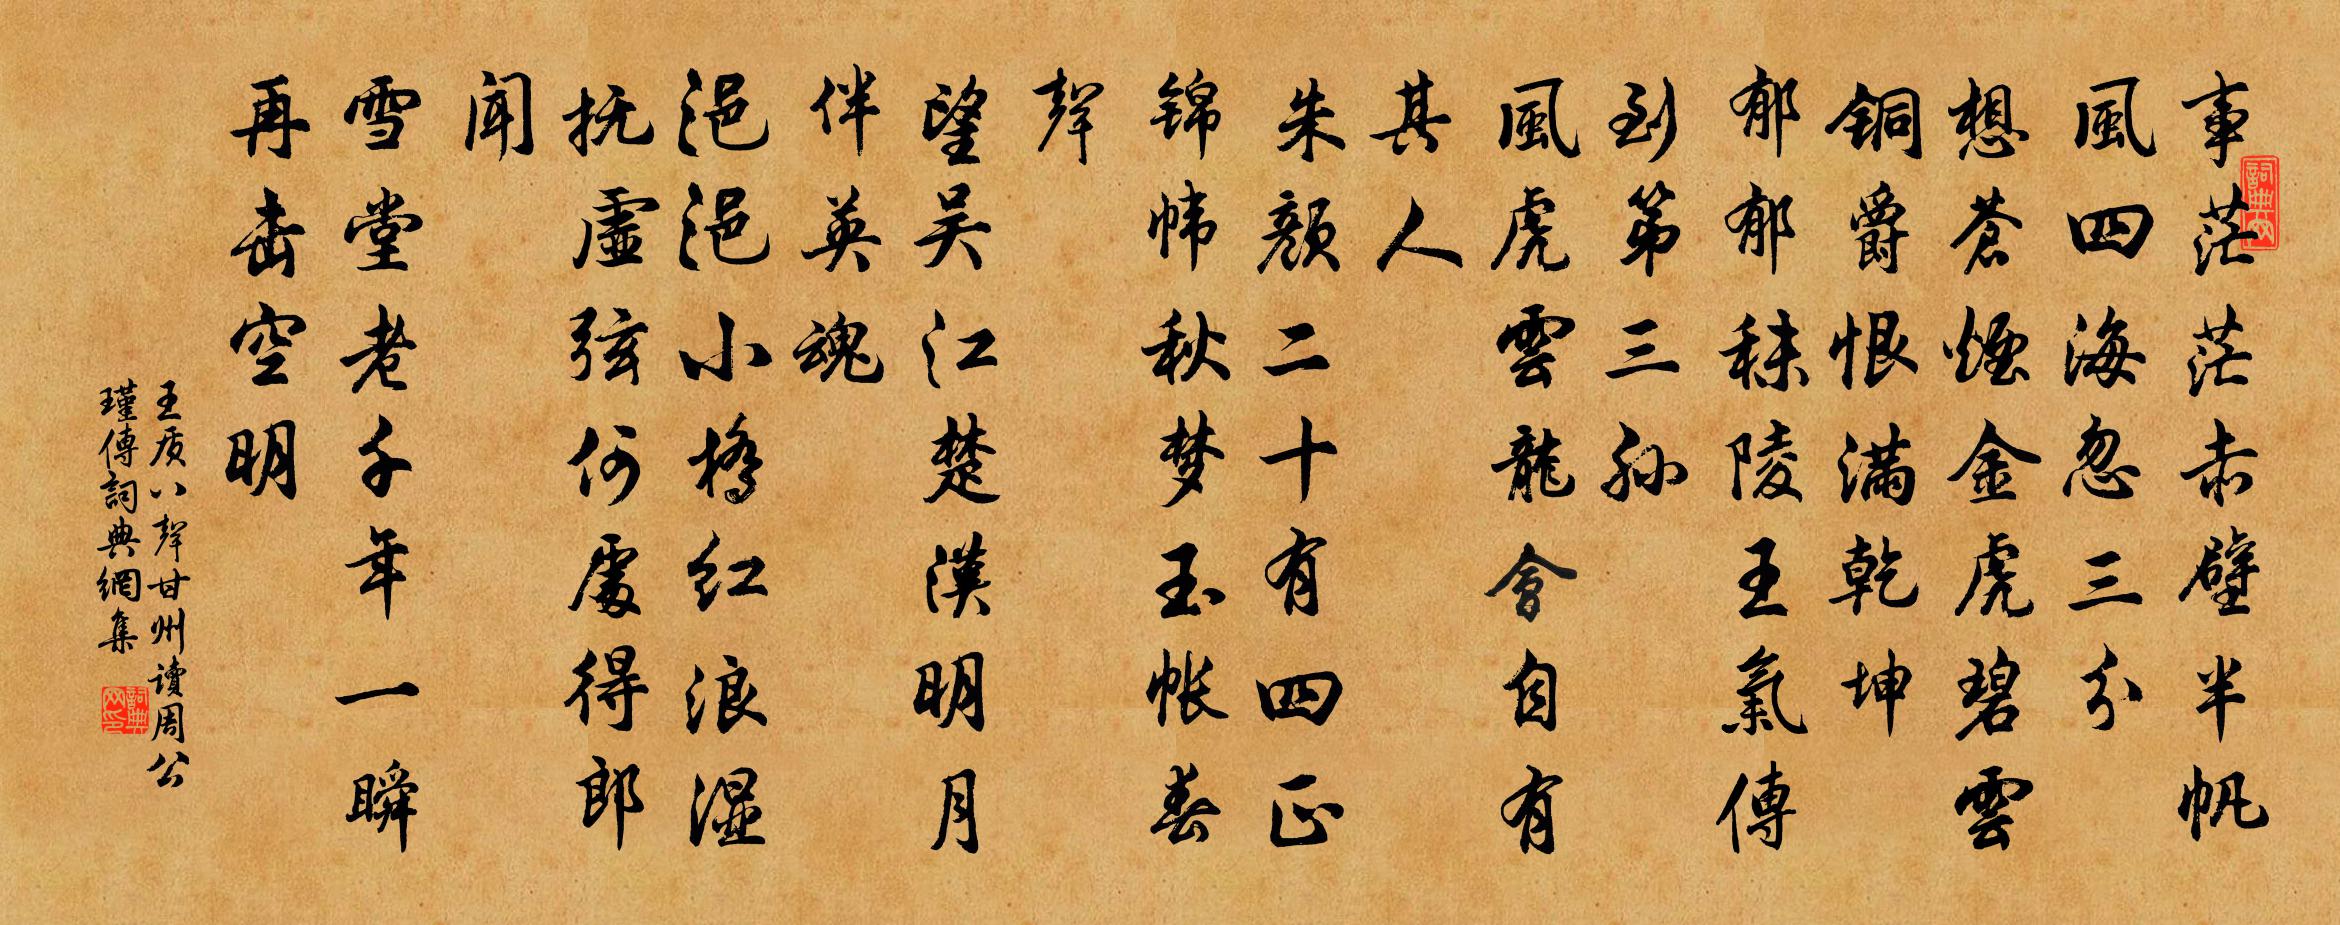 事茫茫赤壁半帆
風四海忽三分
想蒼煙金虎碧雲
銅爵恨满乾坤
郁郁秣陵王氣傳
到第三孙
風虎雲龍會自有
其人
朱顔二十有四正
锦帏秋梦玉帐春
聲
望吴江楚漢明月
伴英魂
浥浥小橋红浪湿
抚虚弦何處得郎
闻
雪堂老千年一瞬
再击空明
王质八聲甘州讀周公
瑾傳詞典網集
詞典网
詞典网印